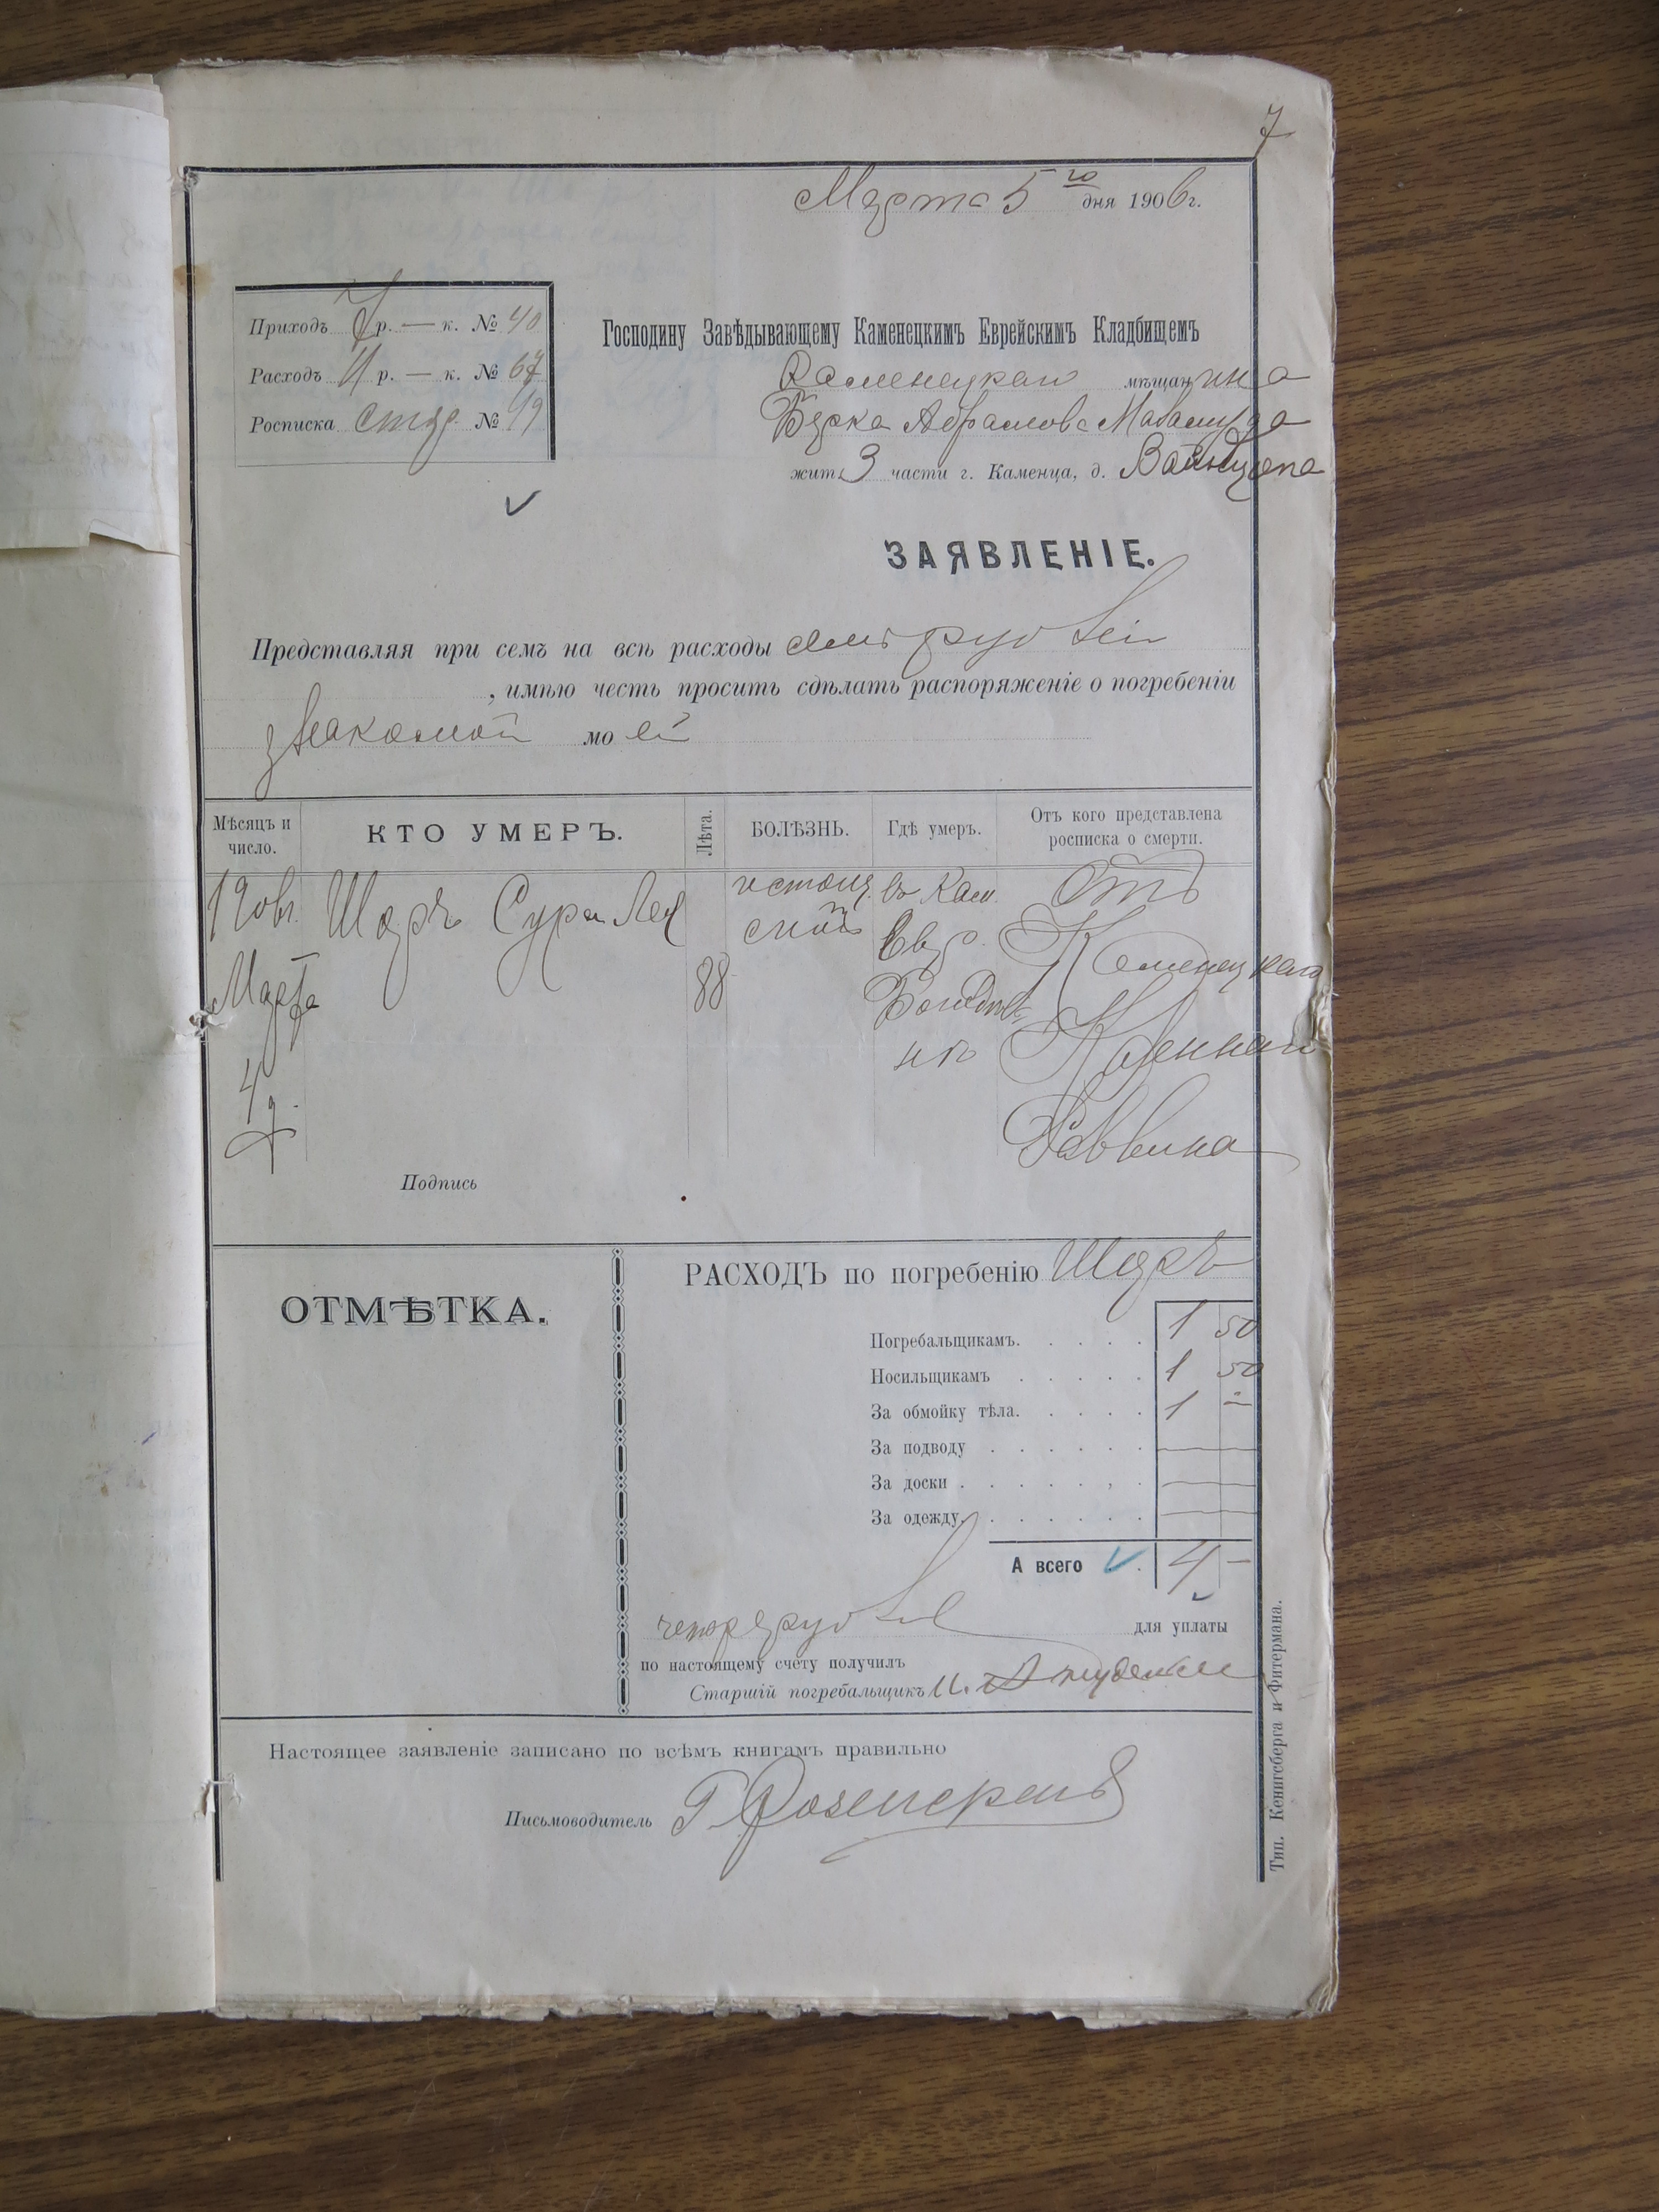 7
Марта 5го дня 1906 г.
Приходъ 7 р. — к. № 40
Расходъ 4 р. — к. № 67
Росписка стар. № 49
Господину Завѣдывающему Каменецкимъ Еврейскимъ Кладбищемъ
Каменецкаго мѣщанина
Берка Абрамова
жит. 3 части г. Каменца, д.
ЗАЯВЛЕНІЕ.
Представляя при семъ на всѣ расходы семь рублей
, имѣю честь просить сдѣлать распоряженіе о погребеніи
знакомой моей
Мѣсяцъ и число.
КТО УМЕРЪ.
Лѣта.
БОЛѢЗНЬ.
Гдѣ умеръ.
Отъ кого представлена росписка о смерти.
190вг. Марта 4 д.
Шоръ Сура Лея
88
въ Кам. Евр.
Отъ Каменецкаго Казеннаго Раввина
Подпись
ОТМѢТКА.
РАСХОДЪ по погребенію Шоръ
Погребальщикамъ. . . . . 1 50
Носильщикамъ . . . . . 1 50
За обмойку тѣла. . . . . 1 —
За подводу . . . . . . —
За доски . . . . . , . —
За одежду. . . . . . . —
А всего . 4 —
четыре рубля для уплаты
по настоящему счету получилъ
Старшій погребальщикъ И.
Настоящее заявленіе записано по всѣмъ книгамъ правильно
Письмоводитель Г
Тип. Кенигсберга и Фитермана.